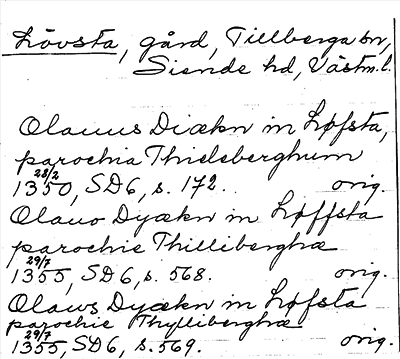 Lövsta, gård, Tillberga sn,
Siende hd, Västm.l.
Olauus Diækn in Løfsta,
parochia Thielsberghum
28/2
1350, SD6, s. 172. orig.
Olauo Dyækn in Løffsta
parochie Thilliberghæ
29/7
1355, SD6, s. 568. orig.
Olaws Dyækn in Løfsta
parochie Thylliberghæ
29/7
1355, SD6, s. 569. orig.